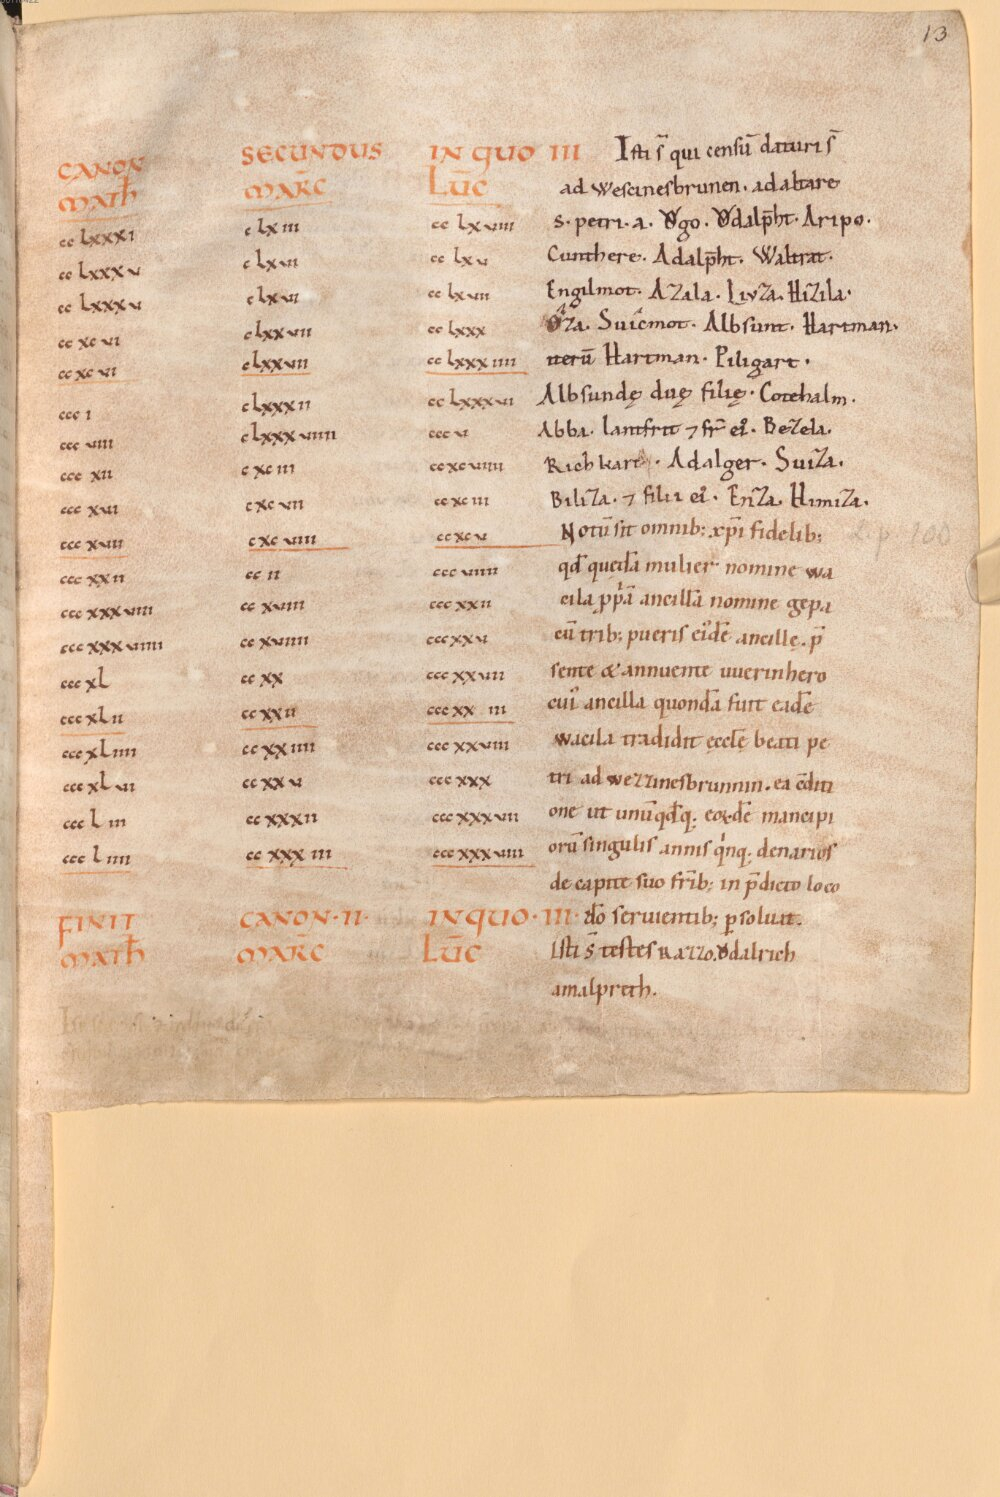 13
CANON SECUNDUS IN QUO III
MATH̄ MAR̄C LŪC
cc lxxxi c lxiii cc lxviii
cc lxxxv c lxvi cc lxv
cc lxxxv c lxvi cc lxvii
cc xcvi clxxvii cc lxxx
cc xcvi clxxvii cc lxxxiiii
ccc i clxxxii cc lxxxvi
ccc viii clxxxviiii ccc v
ccc xii cxciii ccxcviiii
ccc xvi cxcvii ccxciii
ccc xvii cxcviiii ccxcv
ccc xxii cc ii ccc viiii
ccc xxxviii cc xviii ccc xxii
ccc xxxviiii cc xviiii ccc xxv
ccc xl cc xx ccc xxvii
ccc xlii cc xxii ccc xx iii
ccc xliiii cc xxiiii ccc xxviii
ccc xlvii cc xxv ccc xxx
ccc liii cc xxxii ccc xxxvii
ccc liiii cc xxxiii ccc xxxviii
FINIT CANON·II· IN QUO·III·
MATH̄ MAR̄C LŪC
Isti s̄ qui censū daturi s̄
ad wescinesbrunen· ad altare
s· petri· a· Ǒgo· Ǒdalp̄ht· Aripo·
Cunthere· Adalp̄ht· Waltrat·
Engilmot· Azala· Livza· Hizila·
Ǒza· Suicmot· Albsunt· Hartman·
iterū Hartman· Piligart·
Albsundę duę filię· Cotehalm·
Abba· lantfrit ⁊ fr̄ ei᷒· Bezela·
Richkart· Adalger· Suiza·
Biliza· ⁊ filii ei᷒· Enza· Himiza·
Notū sit omnib; xp̄i fidelib;
qd̄ quedā mulier nomine wa
cila p̱pͥā ancillā nomine gepa
cū trib; pueris ei᷒dē ancillę· p̄
sente & annuente uuerinhero
cui᷒ ancilla quondā fuit eadē
wacila tradidit ęccl̄ę beati pe
tri ad wezzinesbrunnin· ea c̄diti
one ut unūqd̄q; eoꝝdē mancipi
orū singulis annis qͥnq; denarios
de capite suo fr̄ib; in p̄dicto loco
dō seruientib; ꝑsoluat·
Isti s̄ testes Razzo· Ǒdalrich
amalpreth·